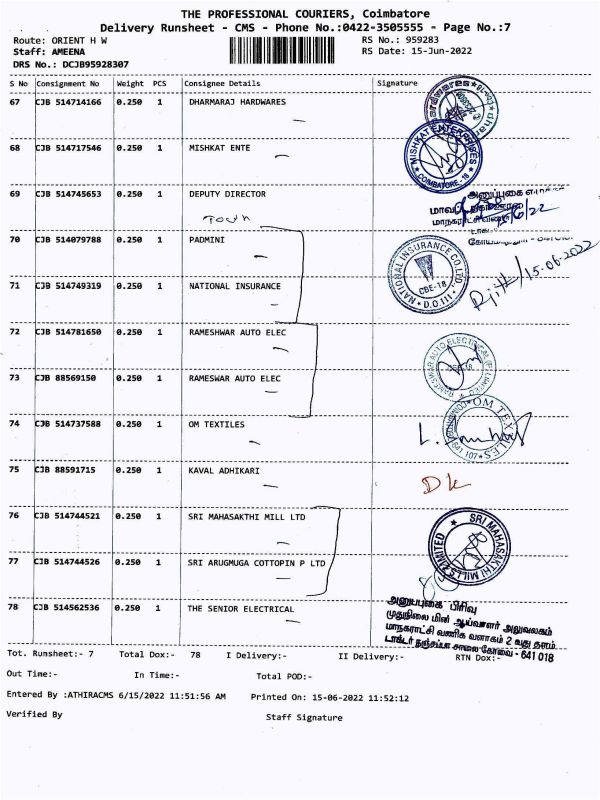 THE PROFESSIONAL COURIERS, Coimbatore
Delivery Runsheet - CMS - Phone No.:0422-3505555 - Page No.:7
Route: ORIENT H W RS No.: 959283
Staff: AMEENA RS Date: 15-Jun-2022
DRS No.: DCJB95928307
S No Consignment No Weight PCS Consignee Details Signature
67 CJB 514714166 0.250 1 DHARMARAJ HARDWARES
68 CJB 514717546 0.250 1 MISHKAT ENTE
MISHKAT ENTERPRISES
COIMBATORE - 18
69 CJB 514745653 0.250 1 DEPUTY DIRECTOR
70 CJB 514079788 0.250 1 PADMINI
15-06-2022
71 CJB 514749319 0.250 1 NATIONAL INSURANCE
NATIONAL INSURANCE CO.LTD
CBE-18
D.O.III
72 CJB 514781650 0.250 1 RAMESHWAR AUTO ELEC
RAMESWAR AUTO ELECTRICAL (P) LIMITED
73 CJB 88569150 0.250 1 RAMESWAR AUTO ELEC
74 CJB 514737588 0.250 1 OM TEXTILES
OM TEXTILES
75 CJB 88591715 0.250 1 KAVAL ADHIKARI
76 CJB 514744521 0.250 1 SRI MAHASAKTHI MILL LTD
SRI MAHASAKTHI MILLS LIMITED
77 CJB 514744526 0.250 1 SRI ARUGMUGA COTTOPIN P LTD
78 CJB 514562536 0.250 1 THE SENIOR ELECTRICAL
அனுப்புகை பிரிவு
முதுநிலை மின் ஆய்வாளர் அலுவலகம்
மாநகராட்சி வணிக வளாகம் 2 வது தளம்
டாக்டர் நஞ்சப்பா சாலை கோவை - 641 018
Tot. Runsheet:- 7 Total Dox:- 78 I Delivery:- II Delivery:- RTN Dox:-
Out Time:- In Time:- Total POD:-
Entered By :ATHIRACMS 6/15/2022 11:51:56 AM Printed On: 15-06-2022 11:52:12
Verified By Staff Signature